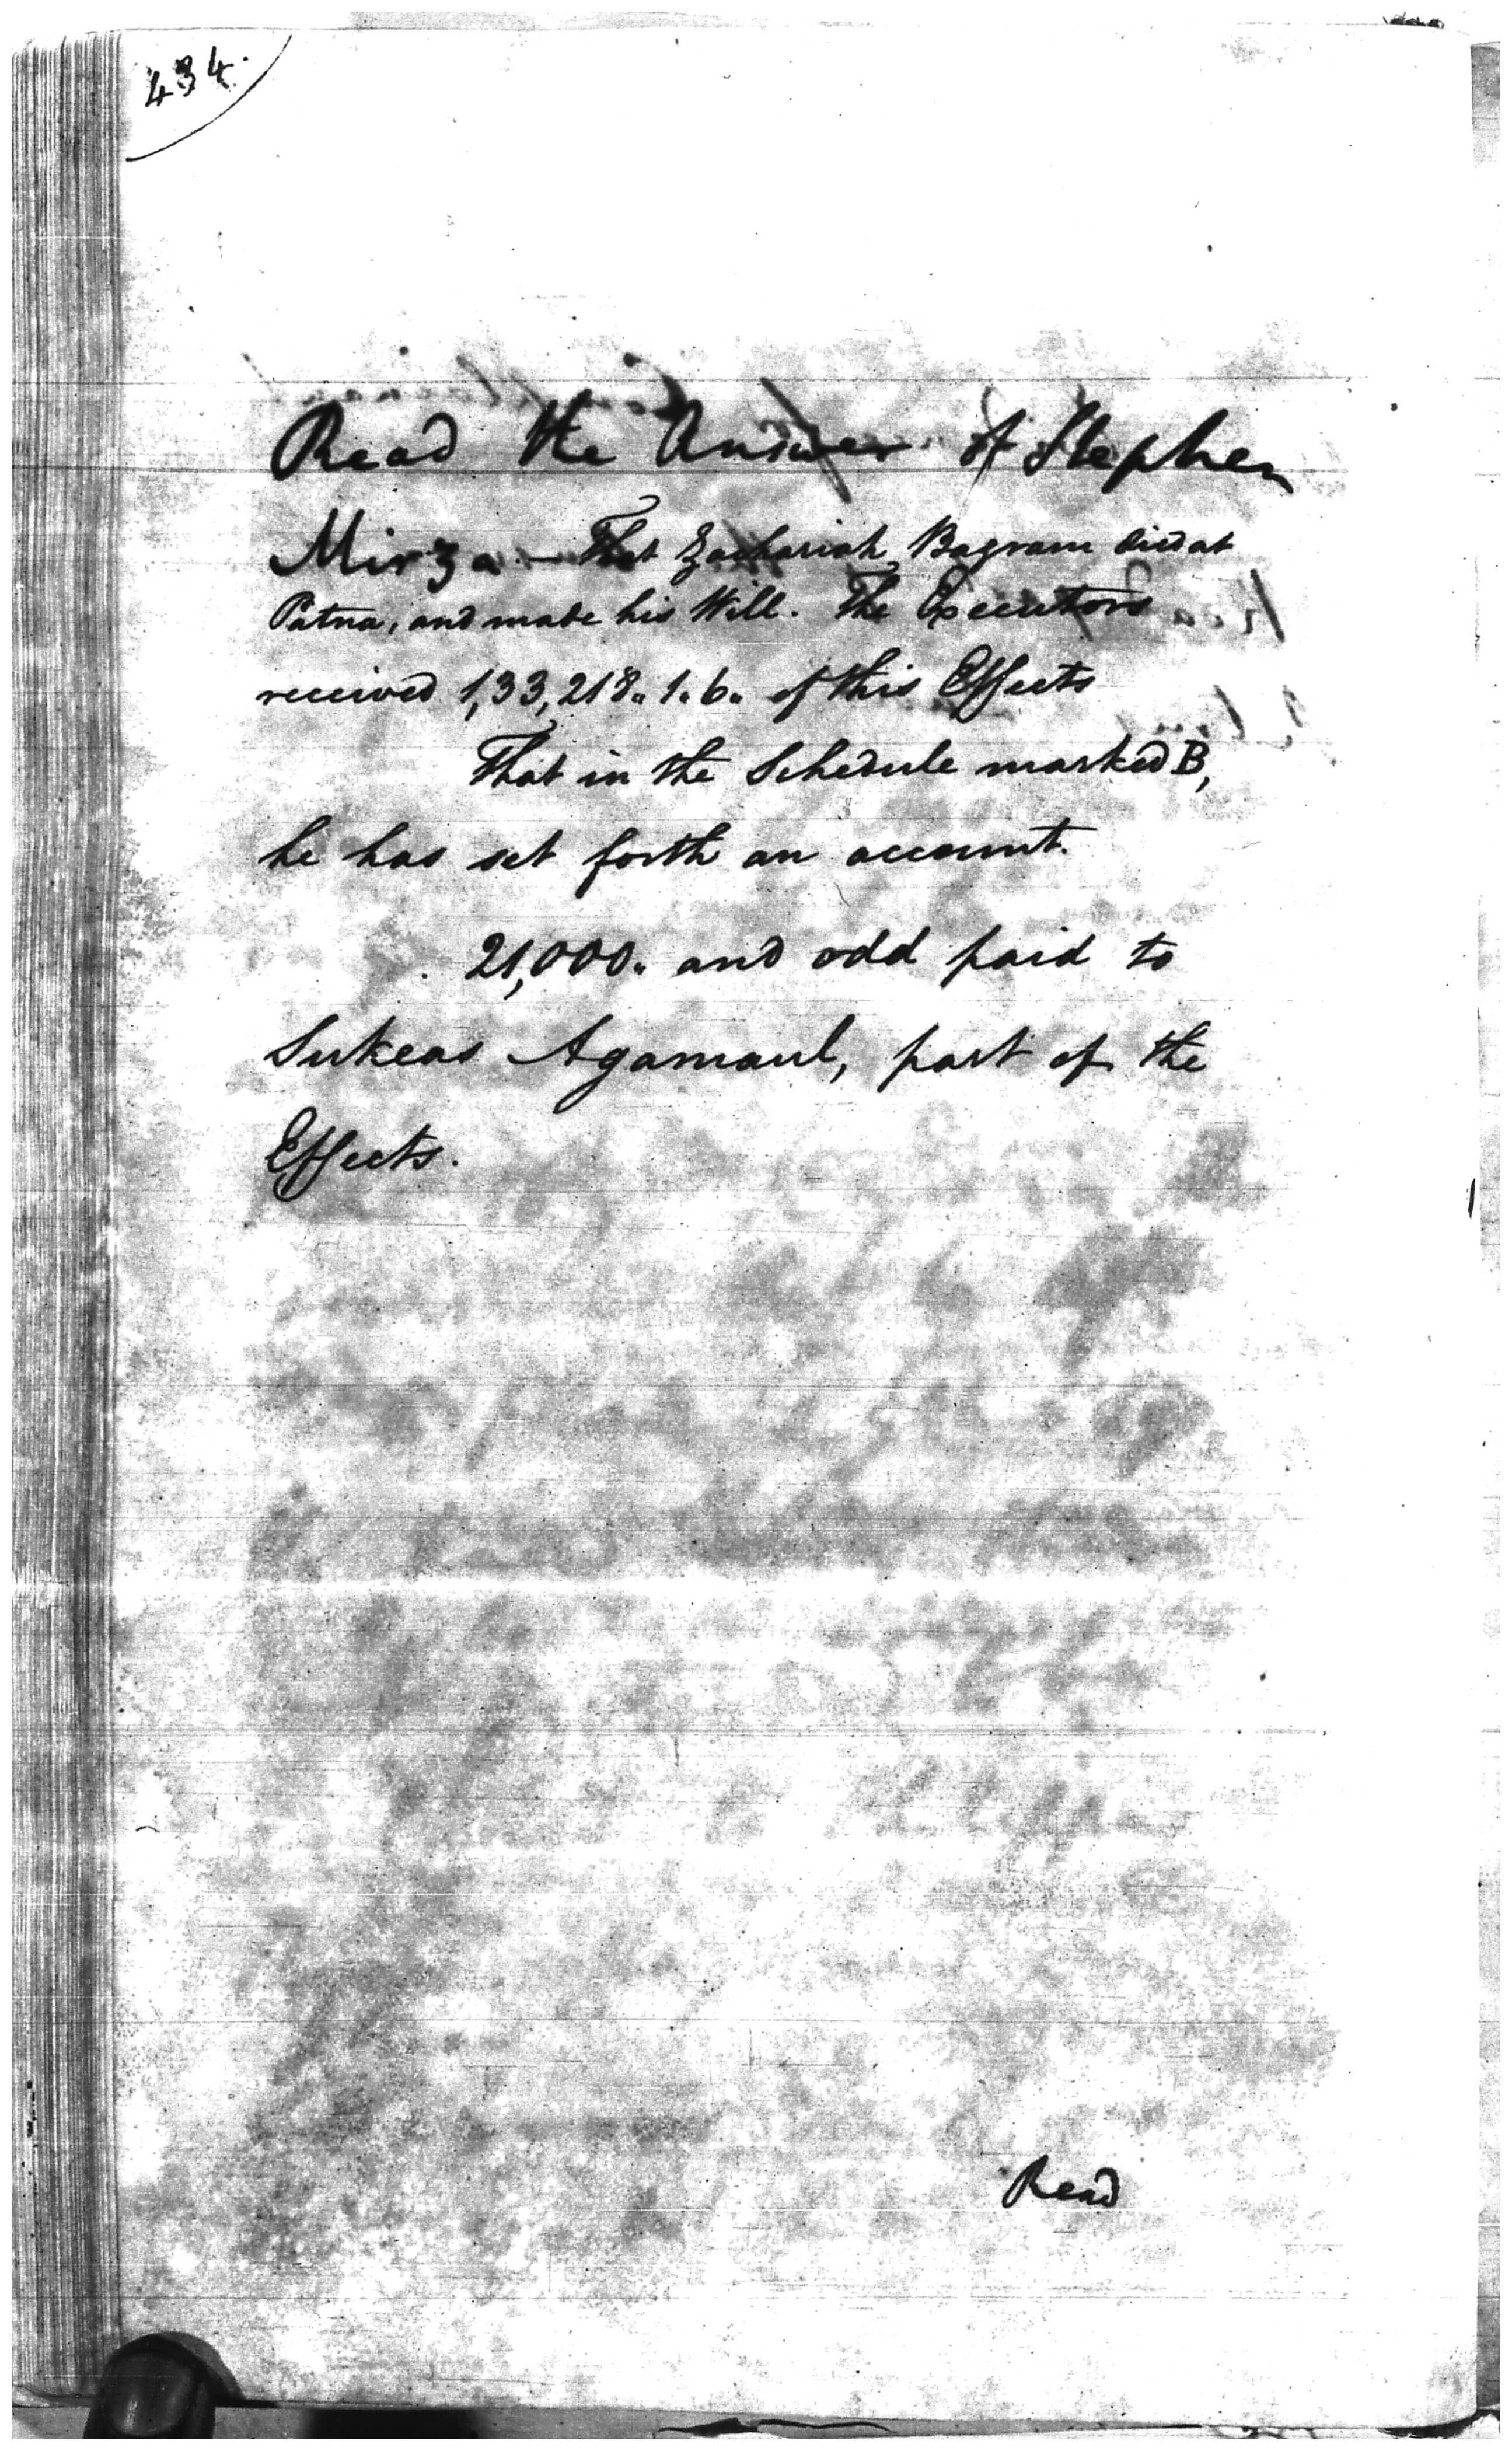 434.
Read the Answer of Stephen
Mirza - That Zachariah Bagram died at
Patna, and made his Will. The Executors
received 1,33,218" 1" 6" of this Effects
That in the Schedule marked B,
he has set forth an account.
21,000" and odd paid to
Sukeas Agamaul, part of the
Effects.
Read